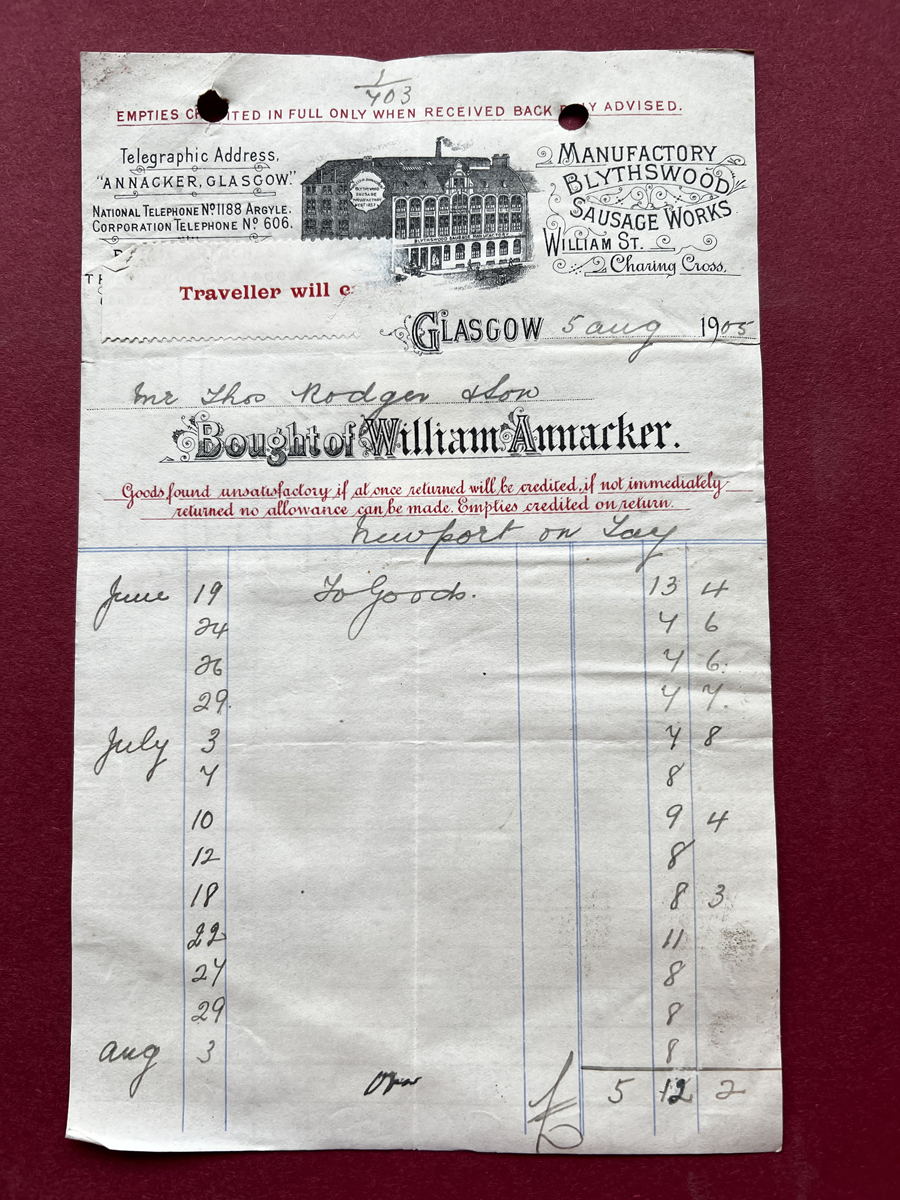 1
703
EMPTIES CR ITED IN FULL ONLY WHEN RECEIVED BACK Y ADVISED.
Telegraphic Address,
"ANNACKER, GLASGOW."
NATIONAL TELEPHONE Nº 1188 ARGYLE.
CORPORATION TELEPHONE Nº 606.
BLYTHSWOOD
SAUSAGE
MANUFACTORY
BLYTHSWOOD SAUSAGE MANUFACTORY
MANUFACTORY
BLYTHSWOOD
SAUSAGE WORKS
WILLIAM ST.
Charing Cross,
Traveller will c
GLASGOW 5 aug 1905
Mr Thos Rodger & Son
Bought of William Annacker.
Goods found unsatisfactory if at once returned will be credited, if not immediately
returned no allowance can be made. Empties credited on return.
Newport on Tay
June 19 To Goods. 13 4
24 7 6
26 7 6.
29. 7 7.
July 3 7 8
7 8
10 9 4
12 8
18 8 3
22 11
27 8
29 8
Aug 3 8
Over £ 5 12 2